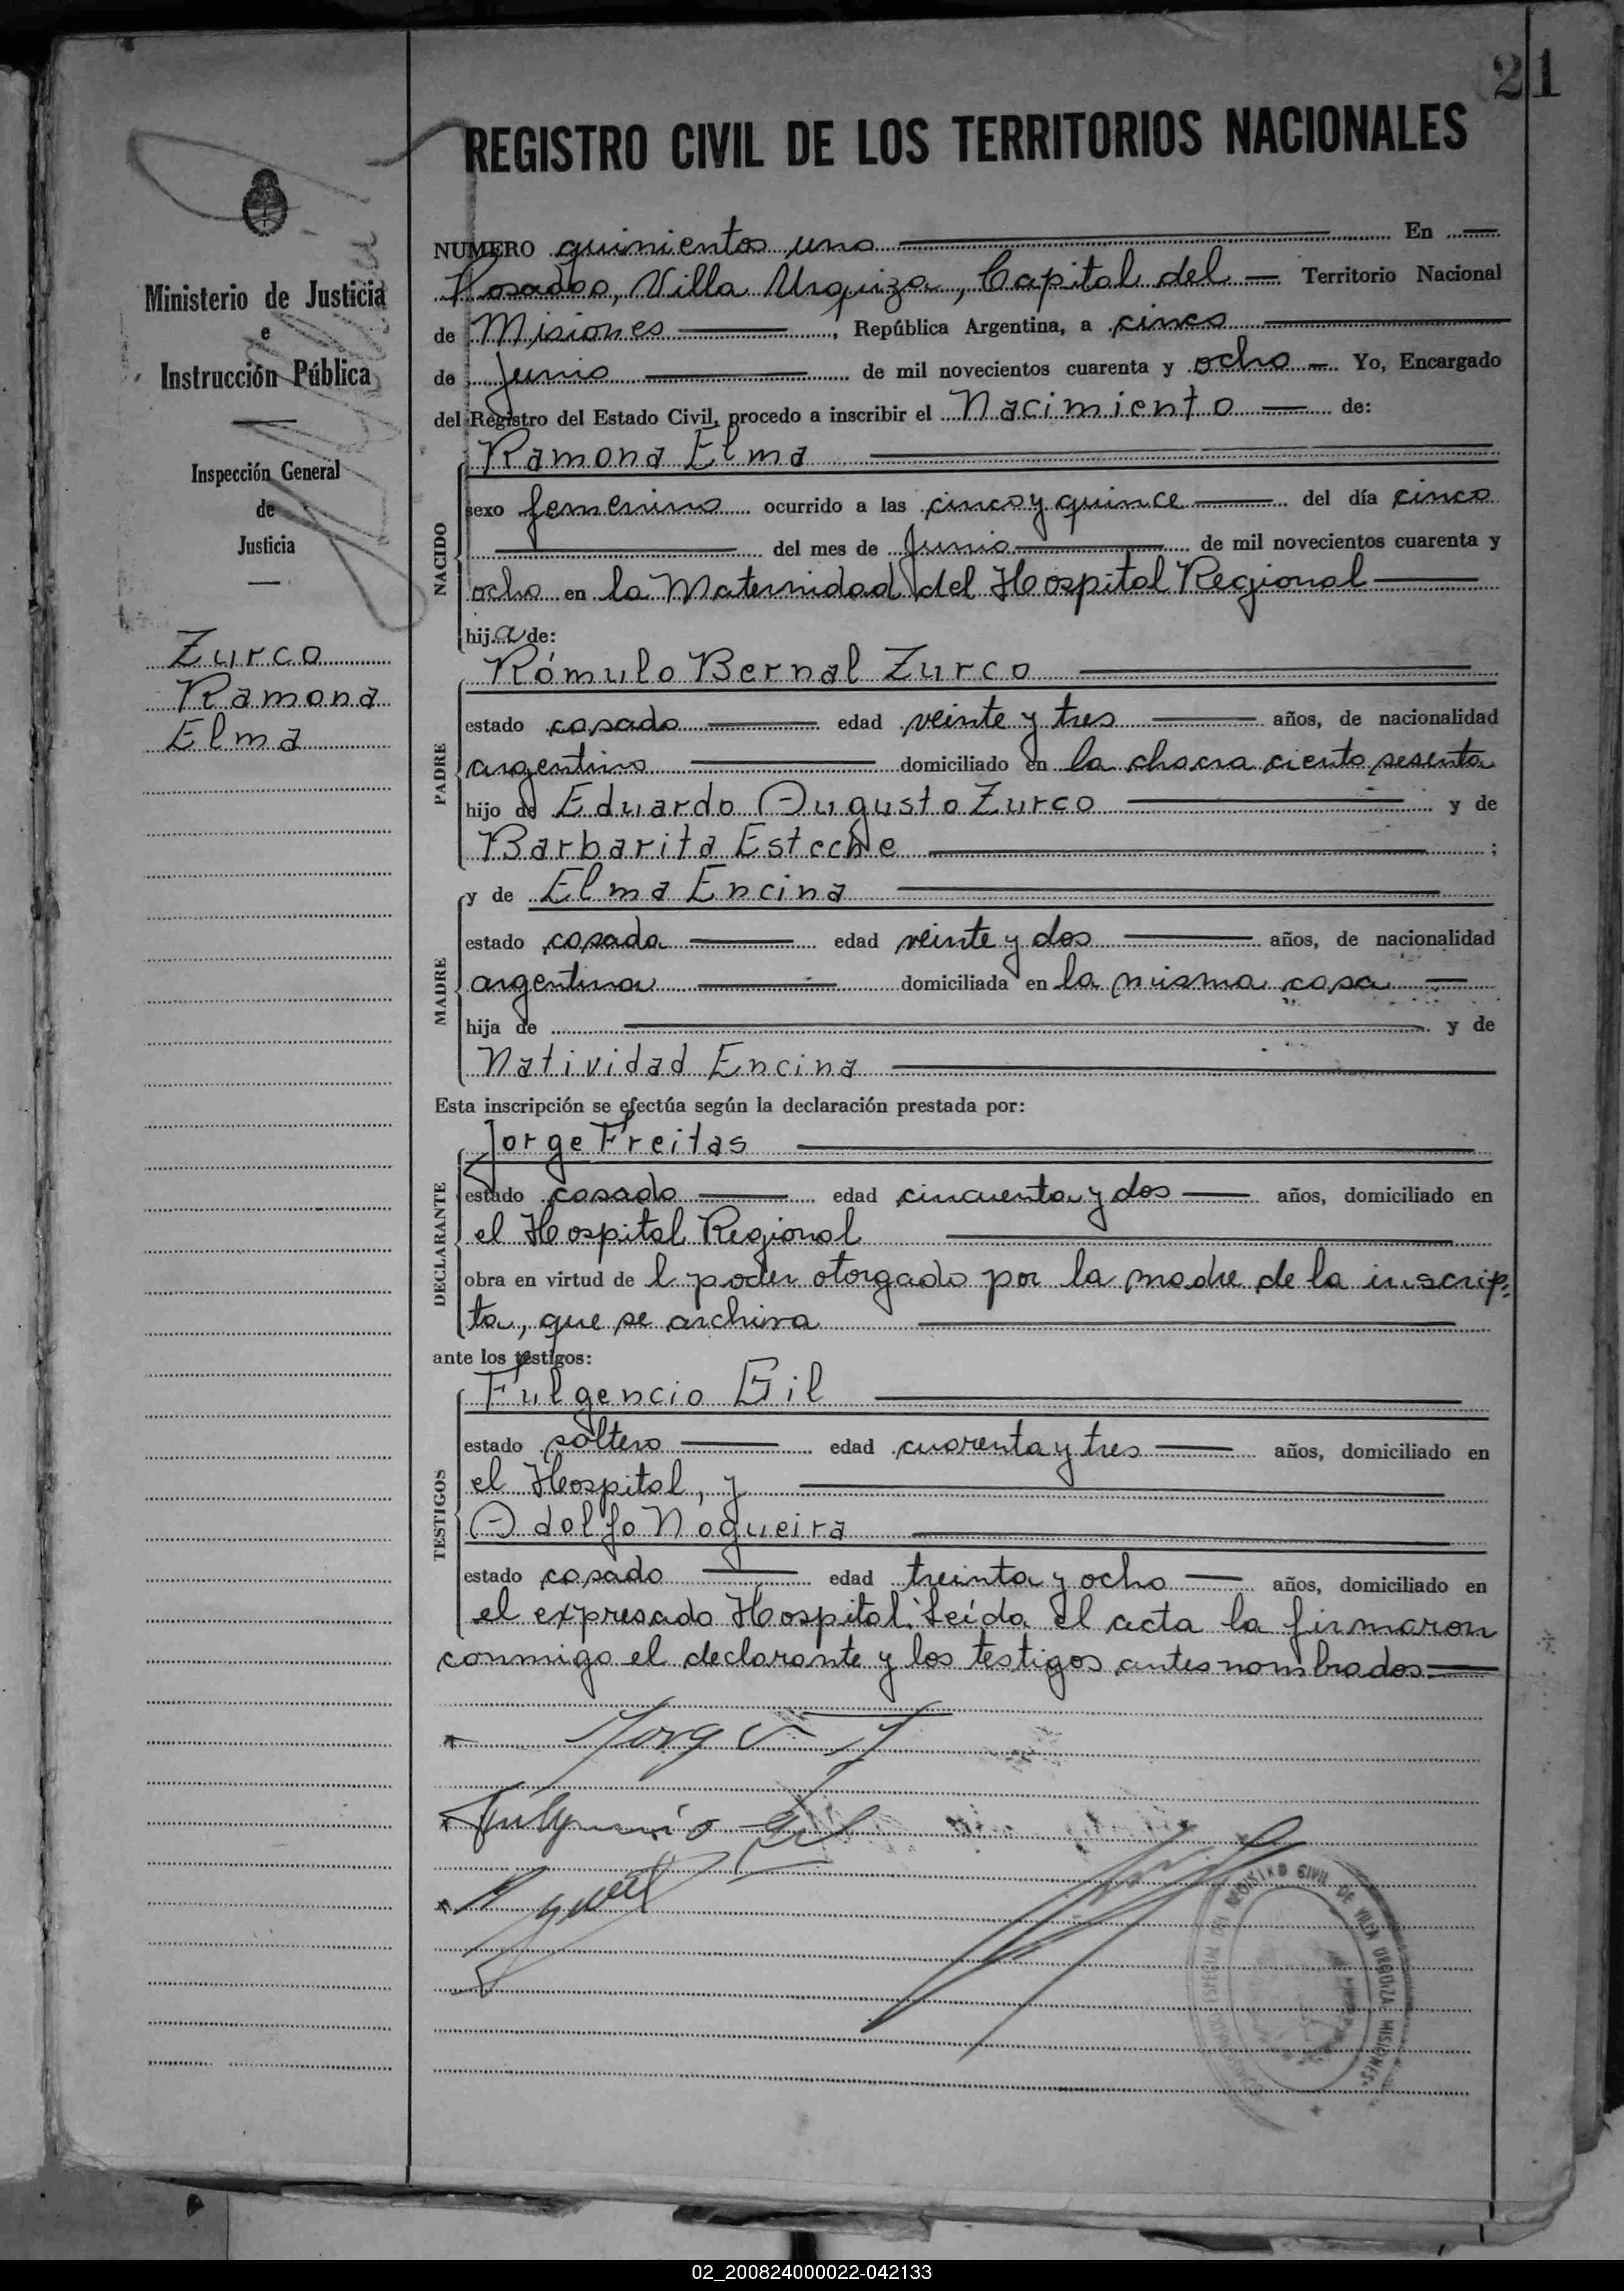 21
REGISTRO CIVIL DE LOS TERRITORIOS NACIONALES
Ministerio de Justicia
e
Instrucción Pública
Inspección General
de
Justicia
Zurco
Ramona
Elma
NUMERO quinientos uno En
Posadas, Villa Urquiza, Capital del Territorio Nacional
de Misiones, República Argentina, a cinco
de Junio de mil novecientos cuarenta y ocho Yo, Encargado
del Registro del Estado Civil, procedo a inscribir el Nacimiento de:
NACIDO
Ramona Elma
sexo femenino ocurrido a las cinco y quince del día cinco
del mes de Junio de mil novecientos cuarenta y
ocho en la Maternidad del Hospital Regional
hija de:
PADRE
Rómulo Bernal Zurco
estado casado edad veinte y tres años, de nacionalidad
argentino domiciliado en la chacra ciento sesenta
hijo de Eduardo Augusto Zurco y de
Barbarita Esteche ;
MADRE
y de Elma Encina
estado casada edad veinte y dos años, de nacionalidad
argentina domiciliada en la misma casa
hija de y de
Natividad Encina
Esta inscripción se efectúa según la declaración prestada por:
DECLARANTE
Jorge Freitas
estado casado edad cincuenta y dos años, domiciliado en
el Hospital Regional
obra en virtud de l poder otorgado por la madre de la inscrip-
ta, que se archiva
ante los testigos:
TESTIGOS
Fulgencio Gil
estado soltero edad cuarenta y tres años, domiciliado en
el Hospital, y
Adolfo Nogueira
estado casado edad treinta y ocho años, domiciliado en
el expresado Hospital. Leída el acta la firmaron
conmigo el declarante y los testigos antes nombrados.
Jorge F
Fulgencio Gil
ESPECIAL DEL REGISTRO CIVIL DE VILLA URQUIZA MISIONES.
02_200824000022-042133